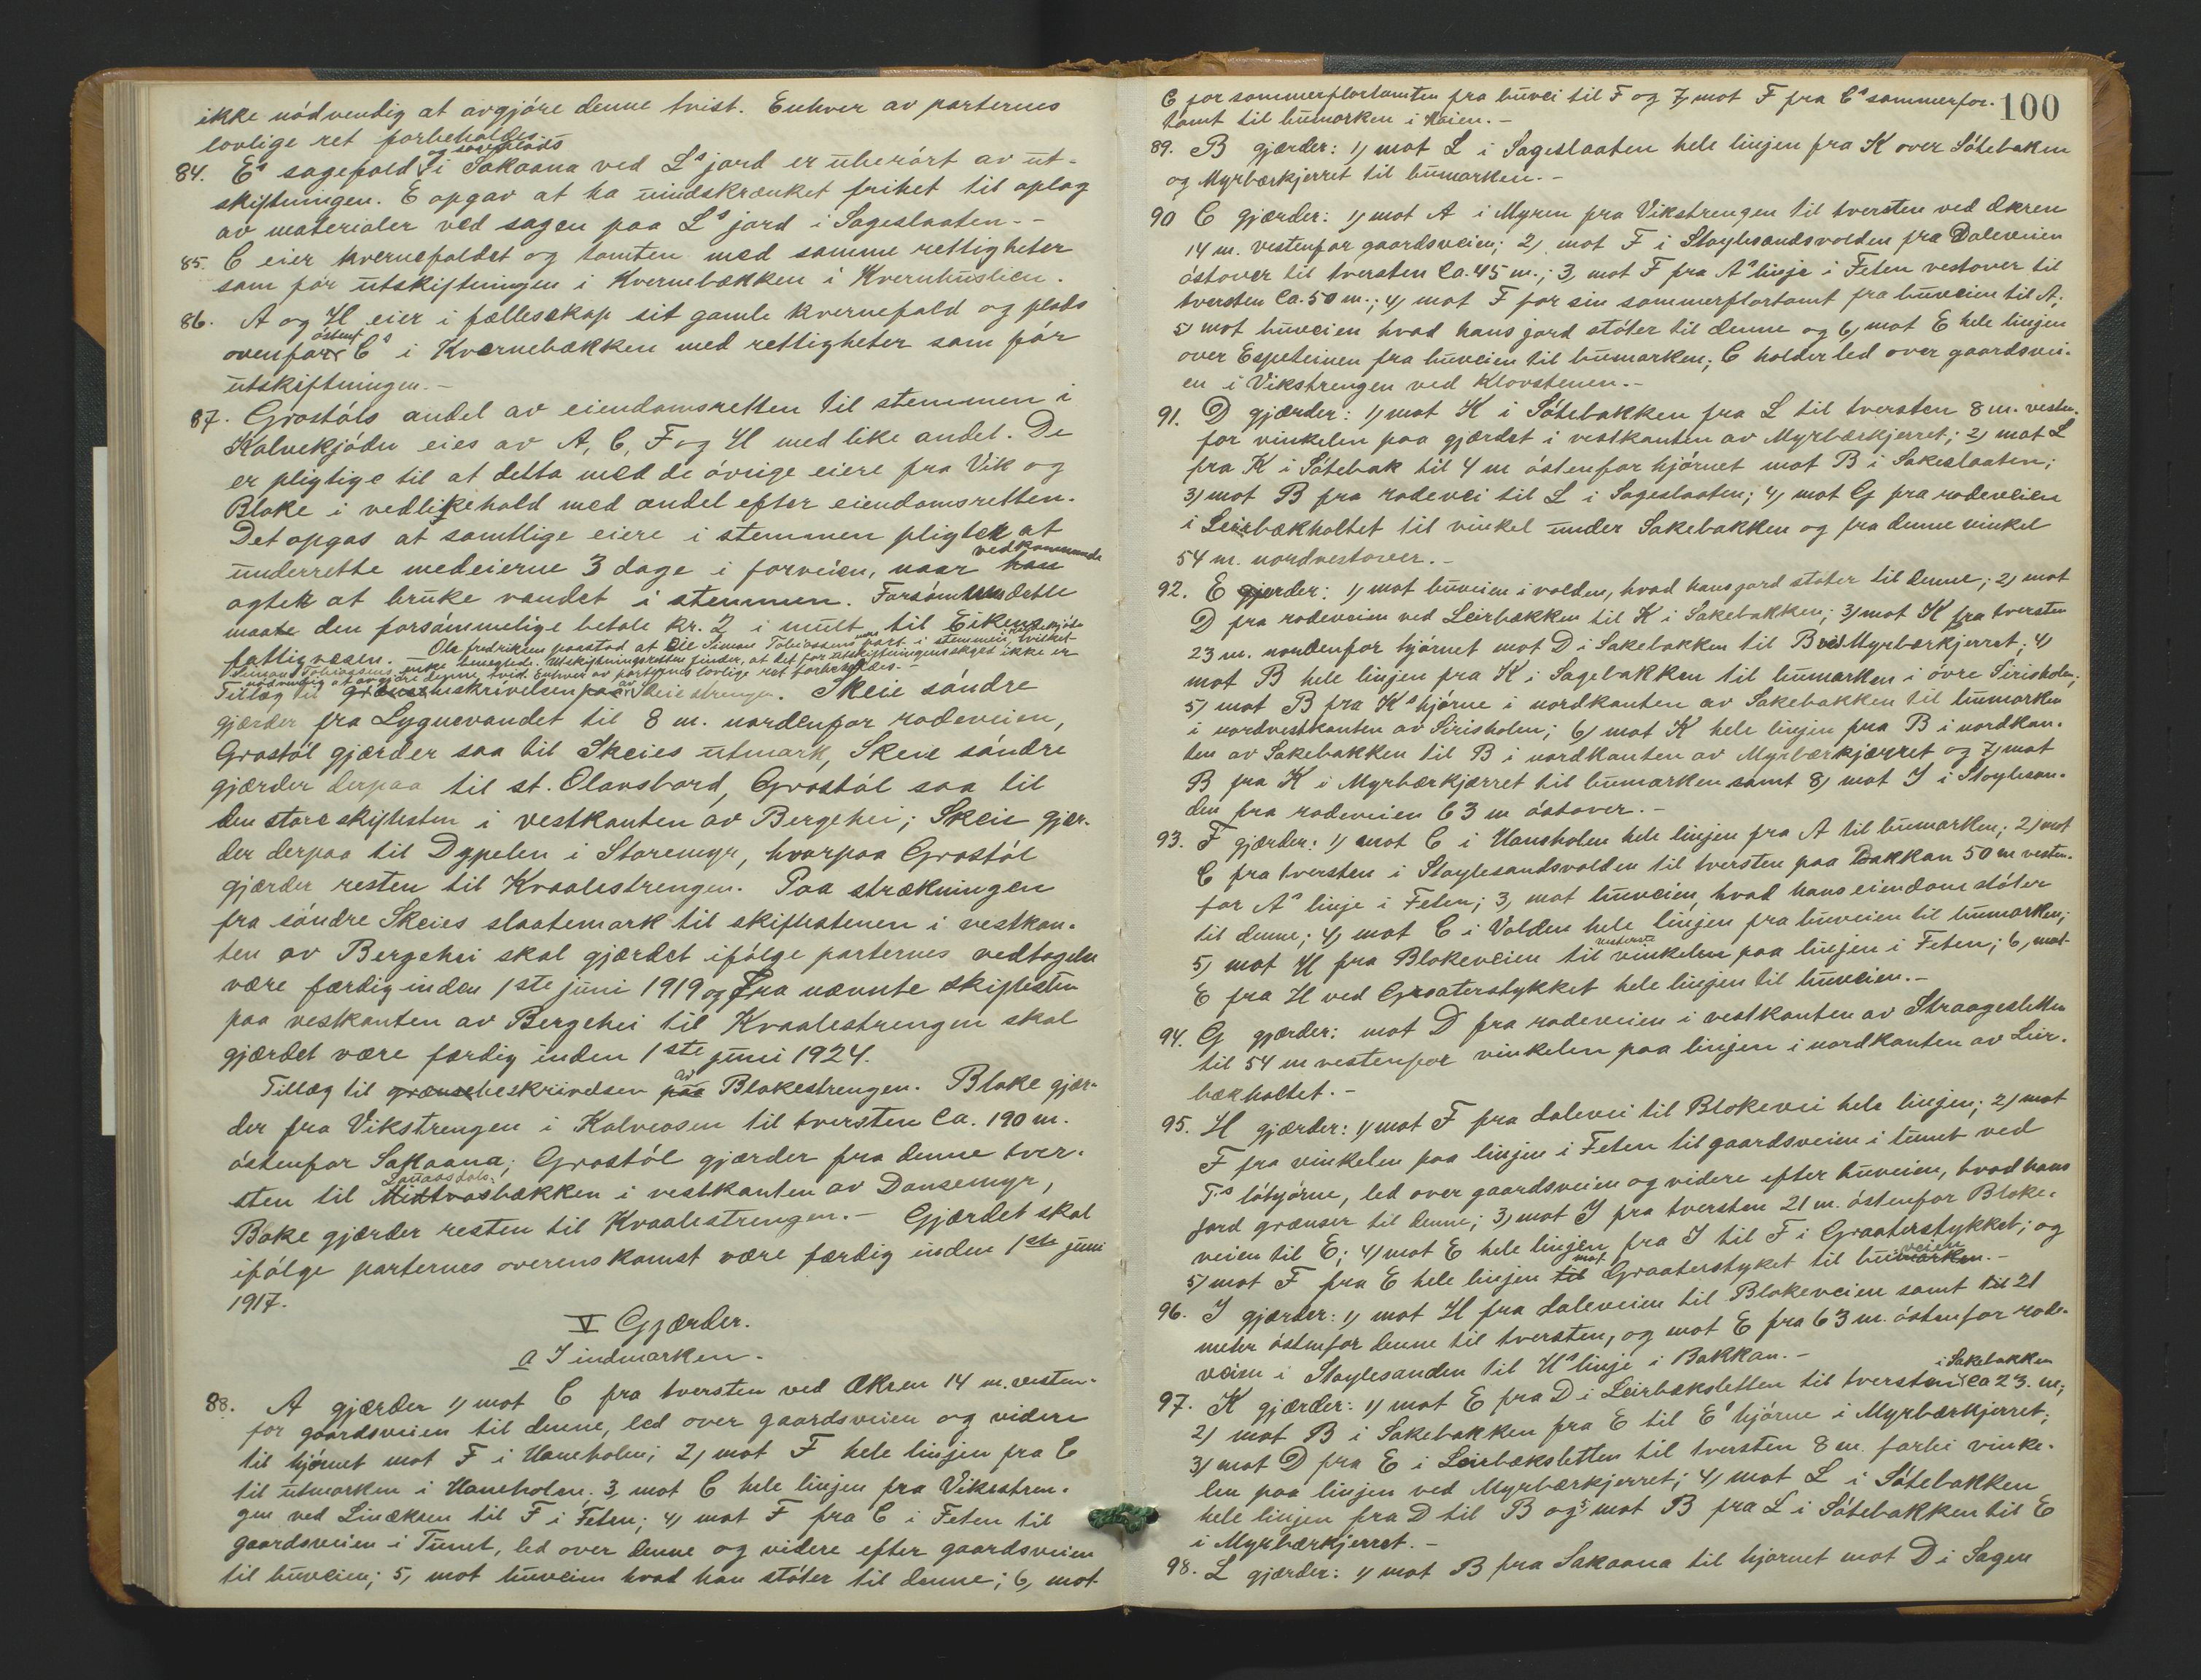 ikke nödvendig at avgjöre denne tvist. Enhver av parternes
lovlige ret forbeholdes.
84. E's sagefald og saveplads i Sakaana ved L's jord er uberört av ut-
skiftningen. E opgav at ha uindskrænket frihet til oplag
av materialer ved sagen paa L's jord i Sageslaaten. -
85. C eier kvernefaldet og tomten med samme rettigheter
som för utskiftningen i Kvernebækken i Kvernhuslien.
86. A og H eier i fællesskap sit gamle kvernefald og plads
ovenfor östenf C's i Kvernebækken med rettigheter som för
utskiftningen. -
87. Grostöls andel av eiendomsretten til stemmen i
Kalvekjödn eies av A, C, F og H med like andel. De
er pligtige til at delta med de övrige eiere fra Vik og
Bloke i vedlikehold med andel efter eiendomsretten.
Det opgas at samtlige eiere i stemmen pligter at
underrette medeierne 3 dage i forveien, naar han vedkommende
agter at bruke vandet i stemmen. Forsömmes dette
maate den forsömmelige betale kr. 2 i mult til Eikens
fattigvæsen. - Ole Fredriksen paastod at Ole Simon Tobiassens part i stemmen, hvilket
Simon Tobiassens enke benegtede. Utskiftningsretten finder, at det for utskiftningens skyld ikke er
nödvendig at avgjöre denne tvist. Enhver av parternes lovlige ret forbeholdes. -
Tillæg til grænsebeskrivelsen paa av Skeiestrengen. Skeie söndre
gjærder fra Lygnevandet til 8 m. nordenfor rodeveien,
Grostöl gjærder saa til Skeies utmark, Skeie söndre
gjærder derpaa til st. Olavsbord, Grostöl saa til
den store skiftesten i vestkanten av Bergehei; Skeie gjær-
der derpaa til Dypelen i Storemyr, hvorpaa Grostöl
gjærder resten til Kvaalestrengen. Paa strækningen
fra söndre Skeies slaatemark til skiftestenen i vestkan-
ten av Bergehei skal gjærdet ifölge parternes vedtagelse
være færdig inden 1ste juni 1919 og Fra nævnte skiftesten
paa vestkanten av Bergehei til Kvaalestrengen skal
gjærdet være færdig inden 1ste juni 1924.
Tillæg til grænsebeskrivelsen paa av Blokestrengen. Bloke gjær-
der fra Vikstrengen i Kalveosen til tversten ca. 190 m.
östenfor Sakaana; Grostöl gjærder fra denne tver-
sten til Midtvasbækken i vestkanten av Dansemyr,
Boke gjærder resten til Kvaalestrengen. - Gjærdet skal
ifölge parternes overenskomst være færdig inden 1ste juni
1917.
V Gjærder.
a I indmarken.
88. A gjærder 1) mot C fra tversten ved Ækren 14 m. vesten-
for gaardsveien til denne, led over gaardsveien og videre
til hjörnet mot F i Haneholen; 2) mot F hele linjen fra C
til utmarken i Haneholen. 3, mot C hele linjen fra Vikestren-
gen ved Linækren til F i Feten; 4) mot F fra C i Feten til
gaardsveien i Tunet, led over denne og videre efter gaardsveien
til buveien; 5, mot buveien hvad han stöter til denne; 6, mot
100
C for sommerflortomten fra buvei til F og 7, mot F fra C's sommerflor-
tomt til bumarken i Heien. -
89. B gjærder: 1) mot L i Sageslaaten hele linjen fra K over Sötebakken
og Myrbærkjerret til bumarken. -
90 C gjærder: 1) mot A i Myren fra Vikstrengen til tversten ved Ækren
14 m. vestenfor gaardsveien; 2) mot F i Stoylesandsvolden fra Daleveien
östover til tversten ca. 45 m.; 3, mot F fra A's linje i Feten vestover til
tversten ca. 50 m.; 4, mot F for sin sommerflortomt fra buveien til A;
5, mot buveien hvad hans jord stöter til denne og 6, mot E hele linjen
over Espeteinen fra buveien til bumarken; C holder led over gaardsvei-
en i Vikstrengen ved Klovstenen. -
91. D gjærder: 1) mot K i Sötebakken fra L til tversten 8 m. vesten-
for vinkelen paa gjærdet i vestkanten av Myrbærkjerret; 2) mot L
fra K i Sötebak til 4 m östenfor hjörnet mot B i Sakeslaaten;
3) mot B fra rodevei til L i Sageslaaten; 4) mot G fra rodeveien
i Leirbækholtet til vinkel under Sakebakken og fra denne vinkel
54 m. nordvestover. -
92. E gjærder: 1) mot buveien i volden, hvad hans jord stöter til denne; 2) mot
D fra rodeveien ved Leirbækken til K i Sakebakken; 3) mot K fra tversten
23 m. nordenfor hjörnet mot D i Sakebakken til B ved Myrbærkjerret; 4)
mot B hele linjen fra K i Sagebakken til bumarken i övre Sirisholen;
5) mot B fra K's hjörne i nordkanten av Sakebakken til bumarken
i nordvestkanten av Sirisholen; 6) mot K hele linjen fra B i nordkan-
ten av Sakebakken til B i nordkanten av Myrbærkjærret og 7) mot
B fra K i Myrbærkjærret til bumarken samt 8) mot I i Stoylesan-
den fra rodeveien 63 m östover. -
93. F gjærder: 1) mot C i Haneholen hele linjen fra A til bumarken; 2) mot
C fra tversten i Stoylesandsvolden til tversten paa Bakkan 50 m vesten-
for A's linje i Feten; 3, mot buveien, hvad hans eiendom stöter
til denne; 4) mot C i Volden hele linjen fra buveien til bumarken;
5) mot H fra Blokeveien til vesterste vinkelen paa linjen i Feten; 6, mot
E fra H ved Graaterstykket hele linjen til buveien. -
94. G gjærder: mot D fra rodeveien i vestkanten av Straagesletten
til 54 m vestenfor vinkelen paa linjen i nordkanten av Leir-
bækholtet. -
95. H gjærder: 1) mot F fra dalevei til Blokevei hele linjen; 2) mot
F fra vinkelen paa linjen i Feten til gaardsveien i tunet ved
F's löhjörne, led over gaardsveien og videre efter buveien, hvad hans
jord grænser til denne; 3) mot I fra tversten 21 m. östenfor Bloke-
veien til E; 4) mot E hele linjen fra I til F i Graaterstykket; og
5) mot F fra E hele linjen til mot Graaterstyket til bumarken veien. -
96. I gjærder: 1) mot H fra daleveien til Blokeveien samt til 21
meter östenfor denne til tversten, og mot E fra 63 m. östenfor rode-
veien i Stoylesanden til H's linje i Bakkan. -
97. K gjærder: 1) mot E fra D i Leirbæksletten til tversten i Sakebakken ca 23. m;
2) mot B i Sakebakken fra E til E's hjörne i Myrbærkjerret;
3) mot D fra E i Leirbæksletten til tversten 8 m. forbi vinke-
len paa linjen ved Myrbærkjerret; 4) mot L i Sötebakken
hele linjen fra D til B og 5) mot B fra L i Sötebakken til E
i Myrbærkjerret. -
98. L gjærder: 1) mot B fra Sakaana til hjørnet mot D i Sagen